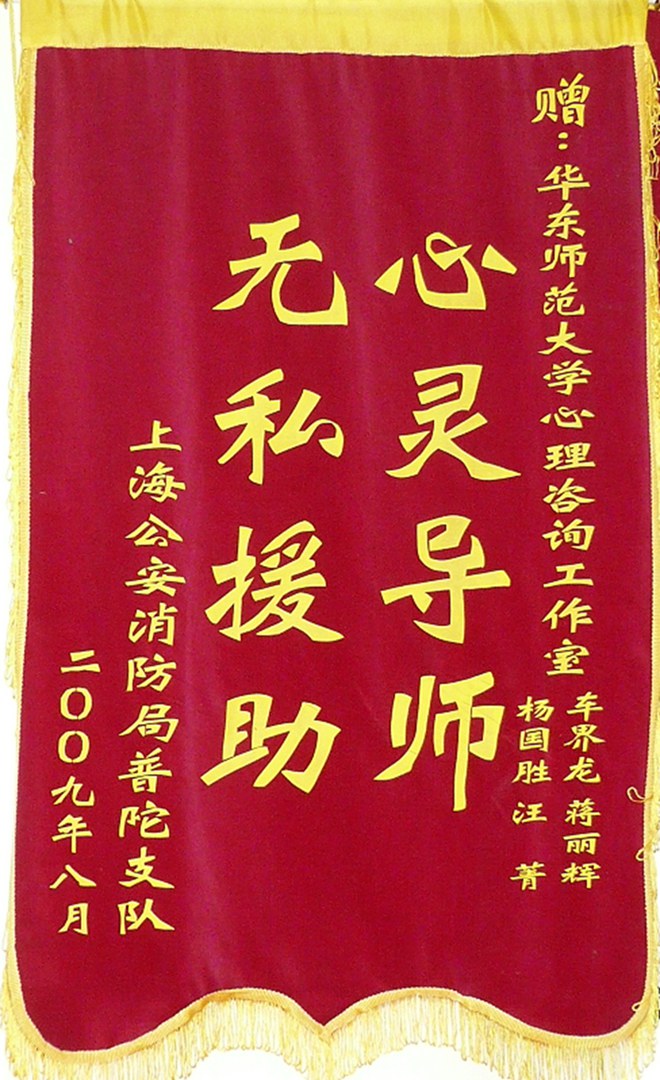 赠：华东师范大学心理咨询工作室
车界龙 蒋丽辉
杨国胜 汪菁
心灵导师
无私援助
上海公安消防局普陀支队
二〇〇九年八月